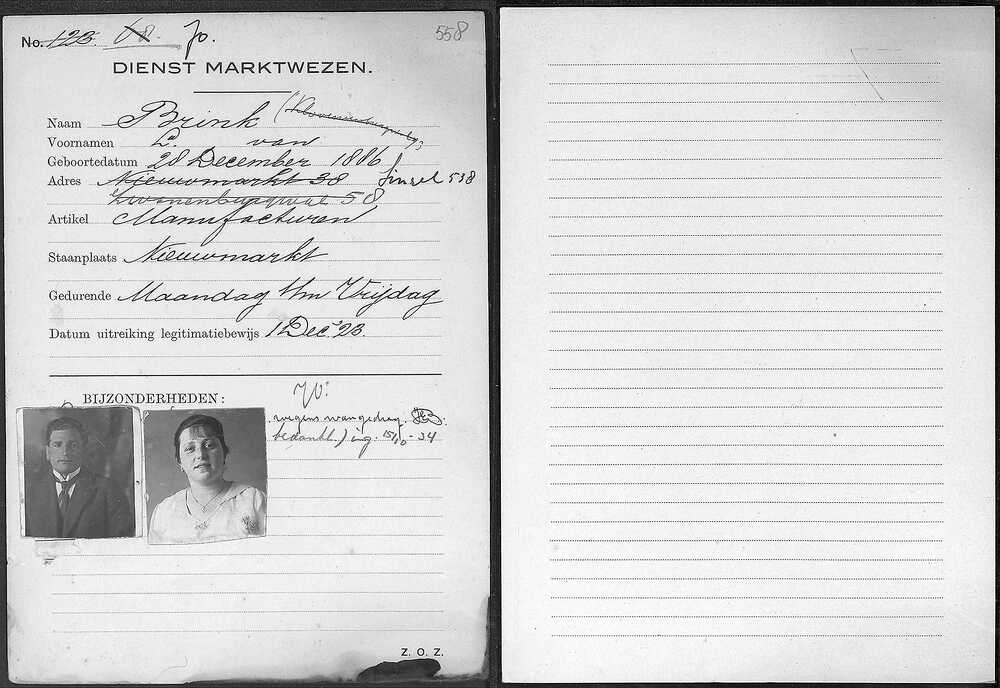 No. 123. 68. 70.
558
DIENST MARKTWEZEN.
Naam Brink
Voornamen L. van
Geboortedatum 28 December 1886
Adres Nieuwmarkt 38 Singel 538
Zwanenburgwal 58
Artikel Manufacturen
Staanplaats Nieuwmarkt
Gedurende Maandag t/m Vrijdag
Datum uitreiking legitimatiebewijs 1 Dec. '23.
BIJZONDERHEDEN:
wegens wangedrag
bedankt.) ing: 15/10-34
Z. O. Z.